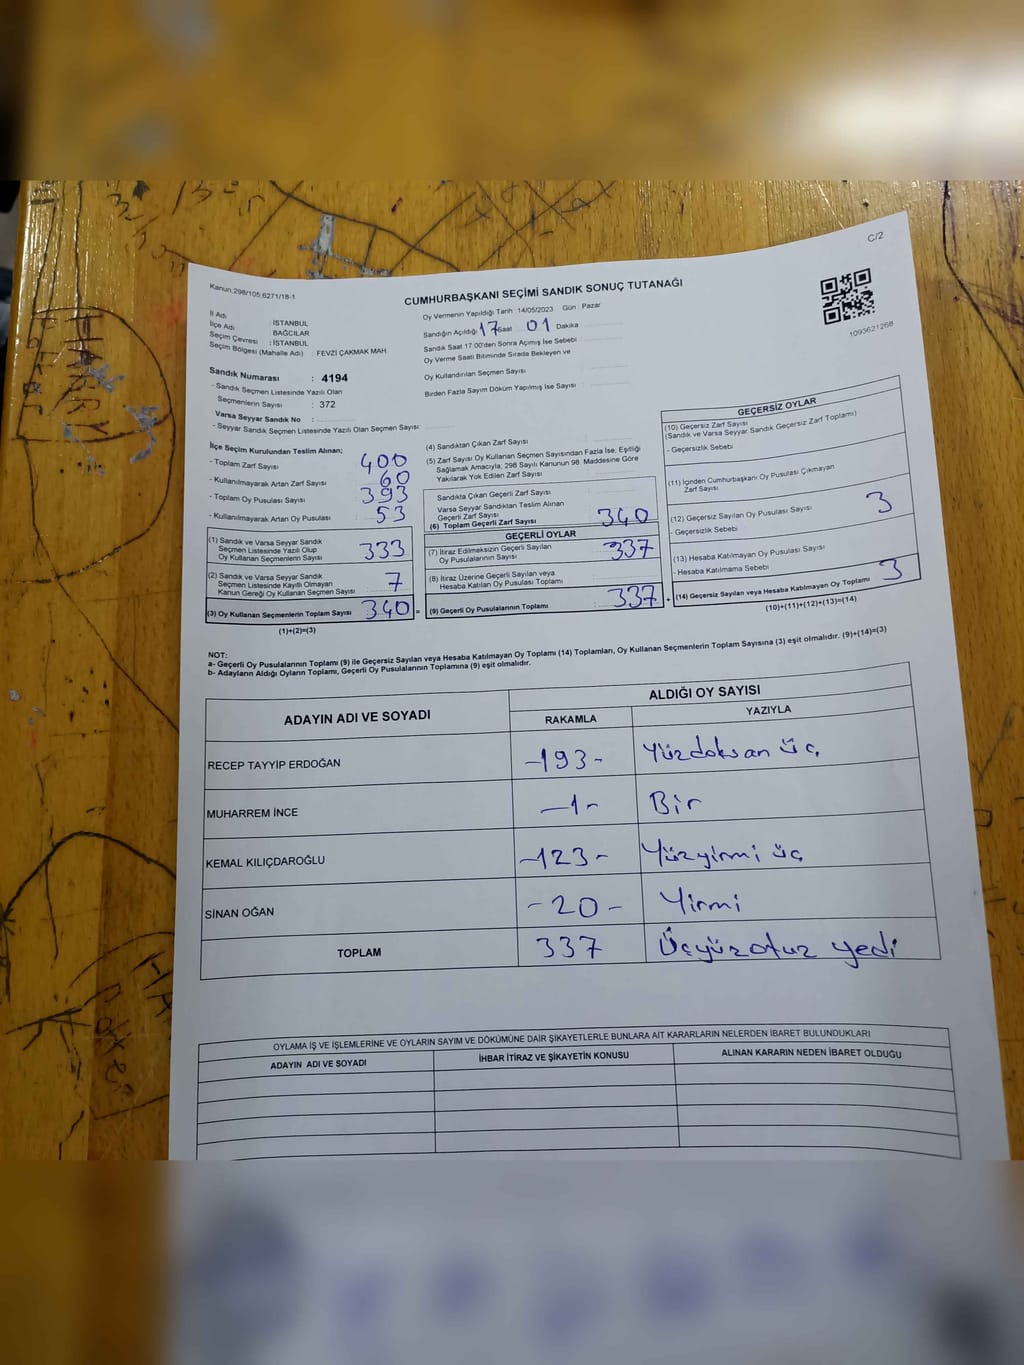 C/2
Kanun;298/105;6271/18-1
CUMHURBAŞKANI SEÇİMİ SANDIK SONUÇ TUTANAĞI
1093621268
İl Adı : İSTANBUL
İlçe Adı : BAĞCILAR
Seçim Çevresi : İSTANBUL
Seçim Bölgesi (Mahalle Adı) : FEVZİ ÇAKMAK MAH.
Sandık Numarası : 4194
- Sandık Seçmen Listesinde Yazılı Olan
Seçmenlerin Sayısı : 372
Varsa Seyyar Sandık No :
- Seyyar Sandık Seçmen Listesinde Yazılı Olan Seçmen Sayısı:
Oy Vermenin Yapıldığı Tarih : 14/05/2023 Gün : Pazar
Sandığın Açıldığı 17 Saat 01 Dakika
Sandık Saat 17.00'den Sonra Açımış İse Sebebi
Oy Verme Saati Bitiminde Sırada Bekleyen ve
Oy Kullandırılan Seçmen Sayısı
Birden Fazla Sayım Döküm Yapılmış İse Sayısı
İlçe Seçim Kurulundan Teslim Alınan;
- Toplam Zarf Sayısı 400
- Kullanılmayarak Artan Zarf Sayısı 60
- Toplam Oy Pusulası Sayısı 393
- Kullanılmayarak Artan Oy Pusulası 53
(1) Sandık ve Varsa Seyyar Sandık
Seçmen Listesinde Yazılı Olup
Oy Kullanan Seçmenlerin Sayısı 333
(2) Sandık ve Varsa Seyyar Sandık
Seçmen Listesinde Kayıtlı Olmayan
Kanun Gereği Oy Kullanan Seçmen Sayısı 7
(3) Oy Kullanan Seçmenlerin Toplam Sayısı 340 =
(1)+(2)=(3)
(4) Sandıktan Çıkan Zarf Sayısı
(5) Zarf Sayısı Oy Kullanan Seçmen Sayısından Fazla İse, Eşitliği
Sağlamak Amacıyla; 298 Sayılı Kanunun 98. Maddesine Göre
Yakılarak Yok Edilen Zarf Sayısı
Sandıkta Çıkan Geçerli Zarf Sayısı
Varsa Seyyar Sandıktan Teslim Alınan
Geçerli Zarf Sayısı
(6) Toplam Geçerli Zarf Sayısı 340
GEÇERLİ OYLAR
(7) İtiraz Edilmeksizin Geçerli Sayılan
Oy Pusulalarının Sayısı 337
(8) İtiraz Üzerine Geçerli Sayılan veya
Hesaba Katılan Oy Pusulası Toplamı
(9) Geçerli Oy Pusulalarının Toplamı 337 +
GEÇERSİZ OYLAR
(10) Geçersiz Zarf Sayısı
(Sandık ve Varsa Seyyar Sandık Geçersiz Zarf Toplamı)
- Geçersizlik Sebebi
(11) İçinden Cumhurbaşkanı Oy Pusulası Çıkmayan
Zarf Sayısı
(12) Geçersiz Sayılan Oy Pusulası Sayısı 3
- Geçersizlik Sebebi
(13) Hesaba Katılmayan Oy Pusulası Sayısı
- Hesaba Katılmama Sebebi
(14) Geçersiz Sayılan veya Hesaba Katılmayan Oy Toplamı 3
(10)+(11)+(12)+(13)=(14)
NOT:
a- Geçerli Oy Pusulalarının Toplamı (9) ile Geçersiz Sayılan veya Hesaba Katılmayan Oy Toplamı (14) Toplamları, Oy Kullanan Seçmenlerin Toplam Sayısına (3) eşit olmalıdır. (9)+(14)=(3)
b- Adayların Aldığı Oyların Toplamı, Geçerli Oy Pusulalarının Toplamına (9) eşit olmalıdır.
ADAYIN ADI VE SOYADI
ALDIĞI OY SAYISI
RAKAMLA YAZIYLA
RECEP TAYYİP ERDOĞAN -193- Yüzdoksan üç
MUHARREM İNCE -1- Bir
KEMAL KILIÇDAROĞLU -123- Yüzyirmi üç
SİNAN OĞAN -20- Yirmi
TOPLAM 337 Üçyüzotuz yedi
OYLAMA İŞ VE İŞLEMLERİNE VE OYLARIN SAYIM VE DÖKÜMÜNE DAİR ŞİKAYETLERLE BUNLARA AİT KARARLARIN NELERDEN İBARET BULUNDUKLARI
ADAYIN ADI VE SOYADI İHBAR İTİRAZ VE ŞİKAYETİN KONUSU ALINAN KARARIN NEDEN İBARET OLDUĞU